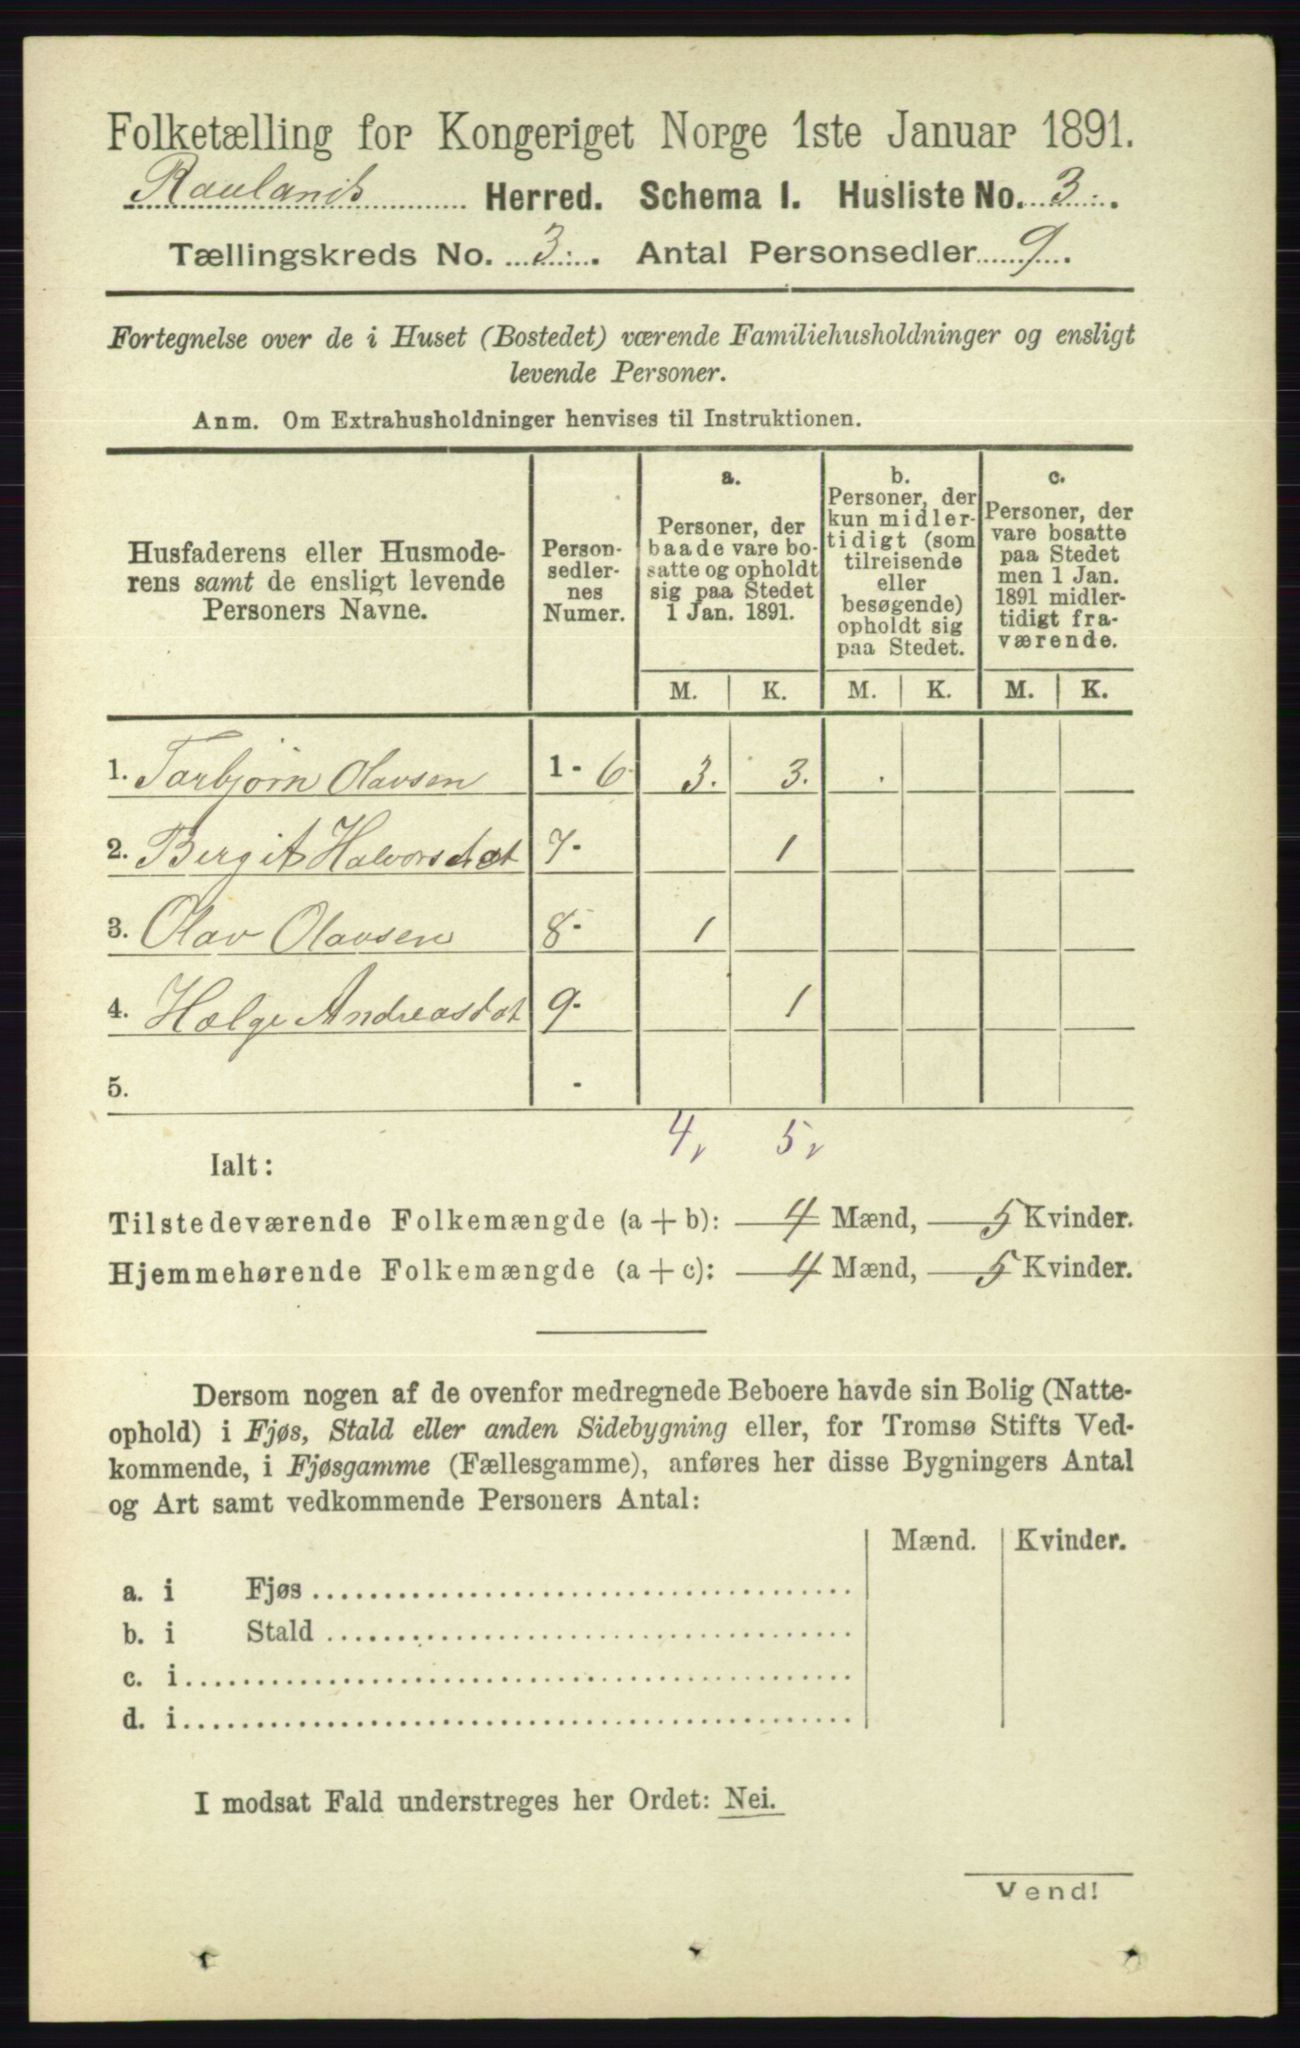 Folketælling for Kongeriget Norge 1ste Januar 1891.
Raulands Herred. Schema I. Husliste No. 3.
Tællingskreds No. 3. Antal Personsedler 9.
Fortegnelse over de i Huset (Bostedet) værende Familiehusholdninger og ensligt
levende Personer.
Anm. Om Extrahusholdninger henvises til Instruktionen.
Husfaderens eller Husmode-
rens samt de ensligt levende
Personers Navne.
Person-
sedler-
nes
Numer.
a.
Personer, der
baade vare bo-
satte og opholdt
sig paa Stedet
1 Jan. 1891.
b.
Personer, der
kun midler-
tidigt (som
tilreisende
eller
besøgende)
opholdt sig
paa Stedet.
c.
Personer, der
vare bosatte
paa Stedet
men 1 Jan.
1891 midler-
tidigt fra-
værende.
M. K. M. K. M. K.
1. Tarbjørn Olavsen 1 - 6 3. 3.
2. Bergit Halvorsdat 7- 1
3. Olav Olavsen 8- 1
4. Hælge Andreasdat 9- 1
5. -
4, 5,
Ialt:
Tilstedeværende Folkemængde (a + b): 4 Mænd, 5 Kvinder.
Hjemmehørende Folkemængde (a + c): 4 Mænd, 5 Kvinder.
Dersom nogen af de ovenfor medregnede Beboere havde sin Bolig (Natte-
ophold) i Fjøs, Stald eller anden Sidebygning eller, for Tromsø Stifts Ved-
kommende, i Fjøsgamme (Fællesgamme), anføres her disse Bygningers Antal
og Art samt vedkommende Personers Antal:
Mænd. Kvinder.
a. i Fjøs
b. i Stald
c. i
d. i
I modsat Fald understreges her Ordet: Nei.
Vend!